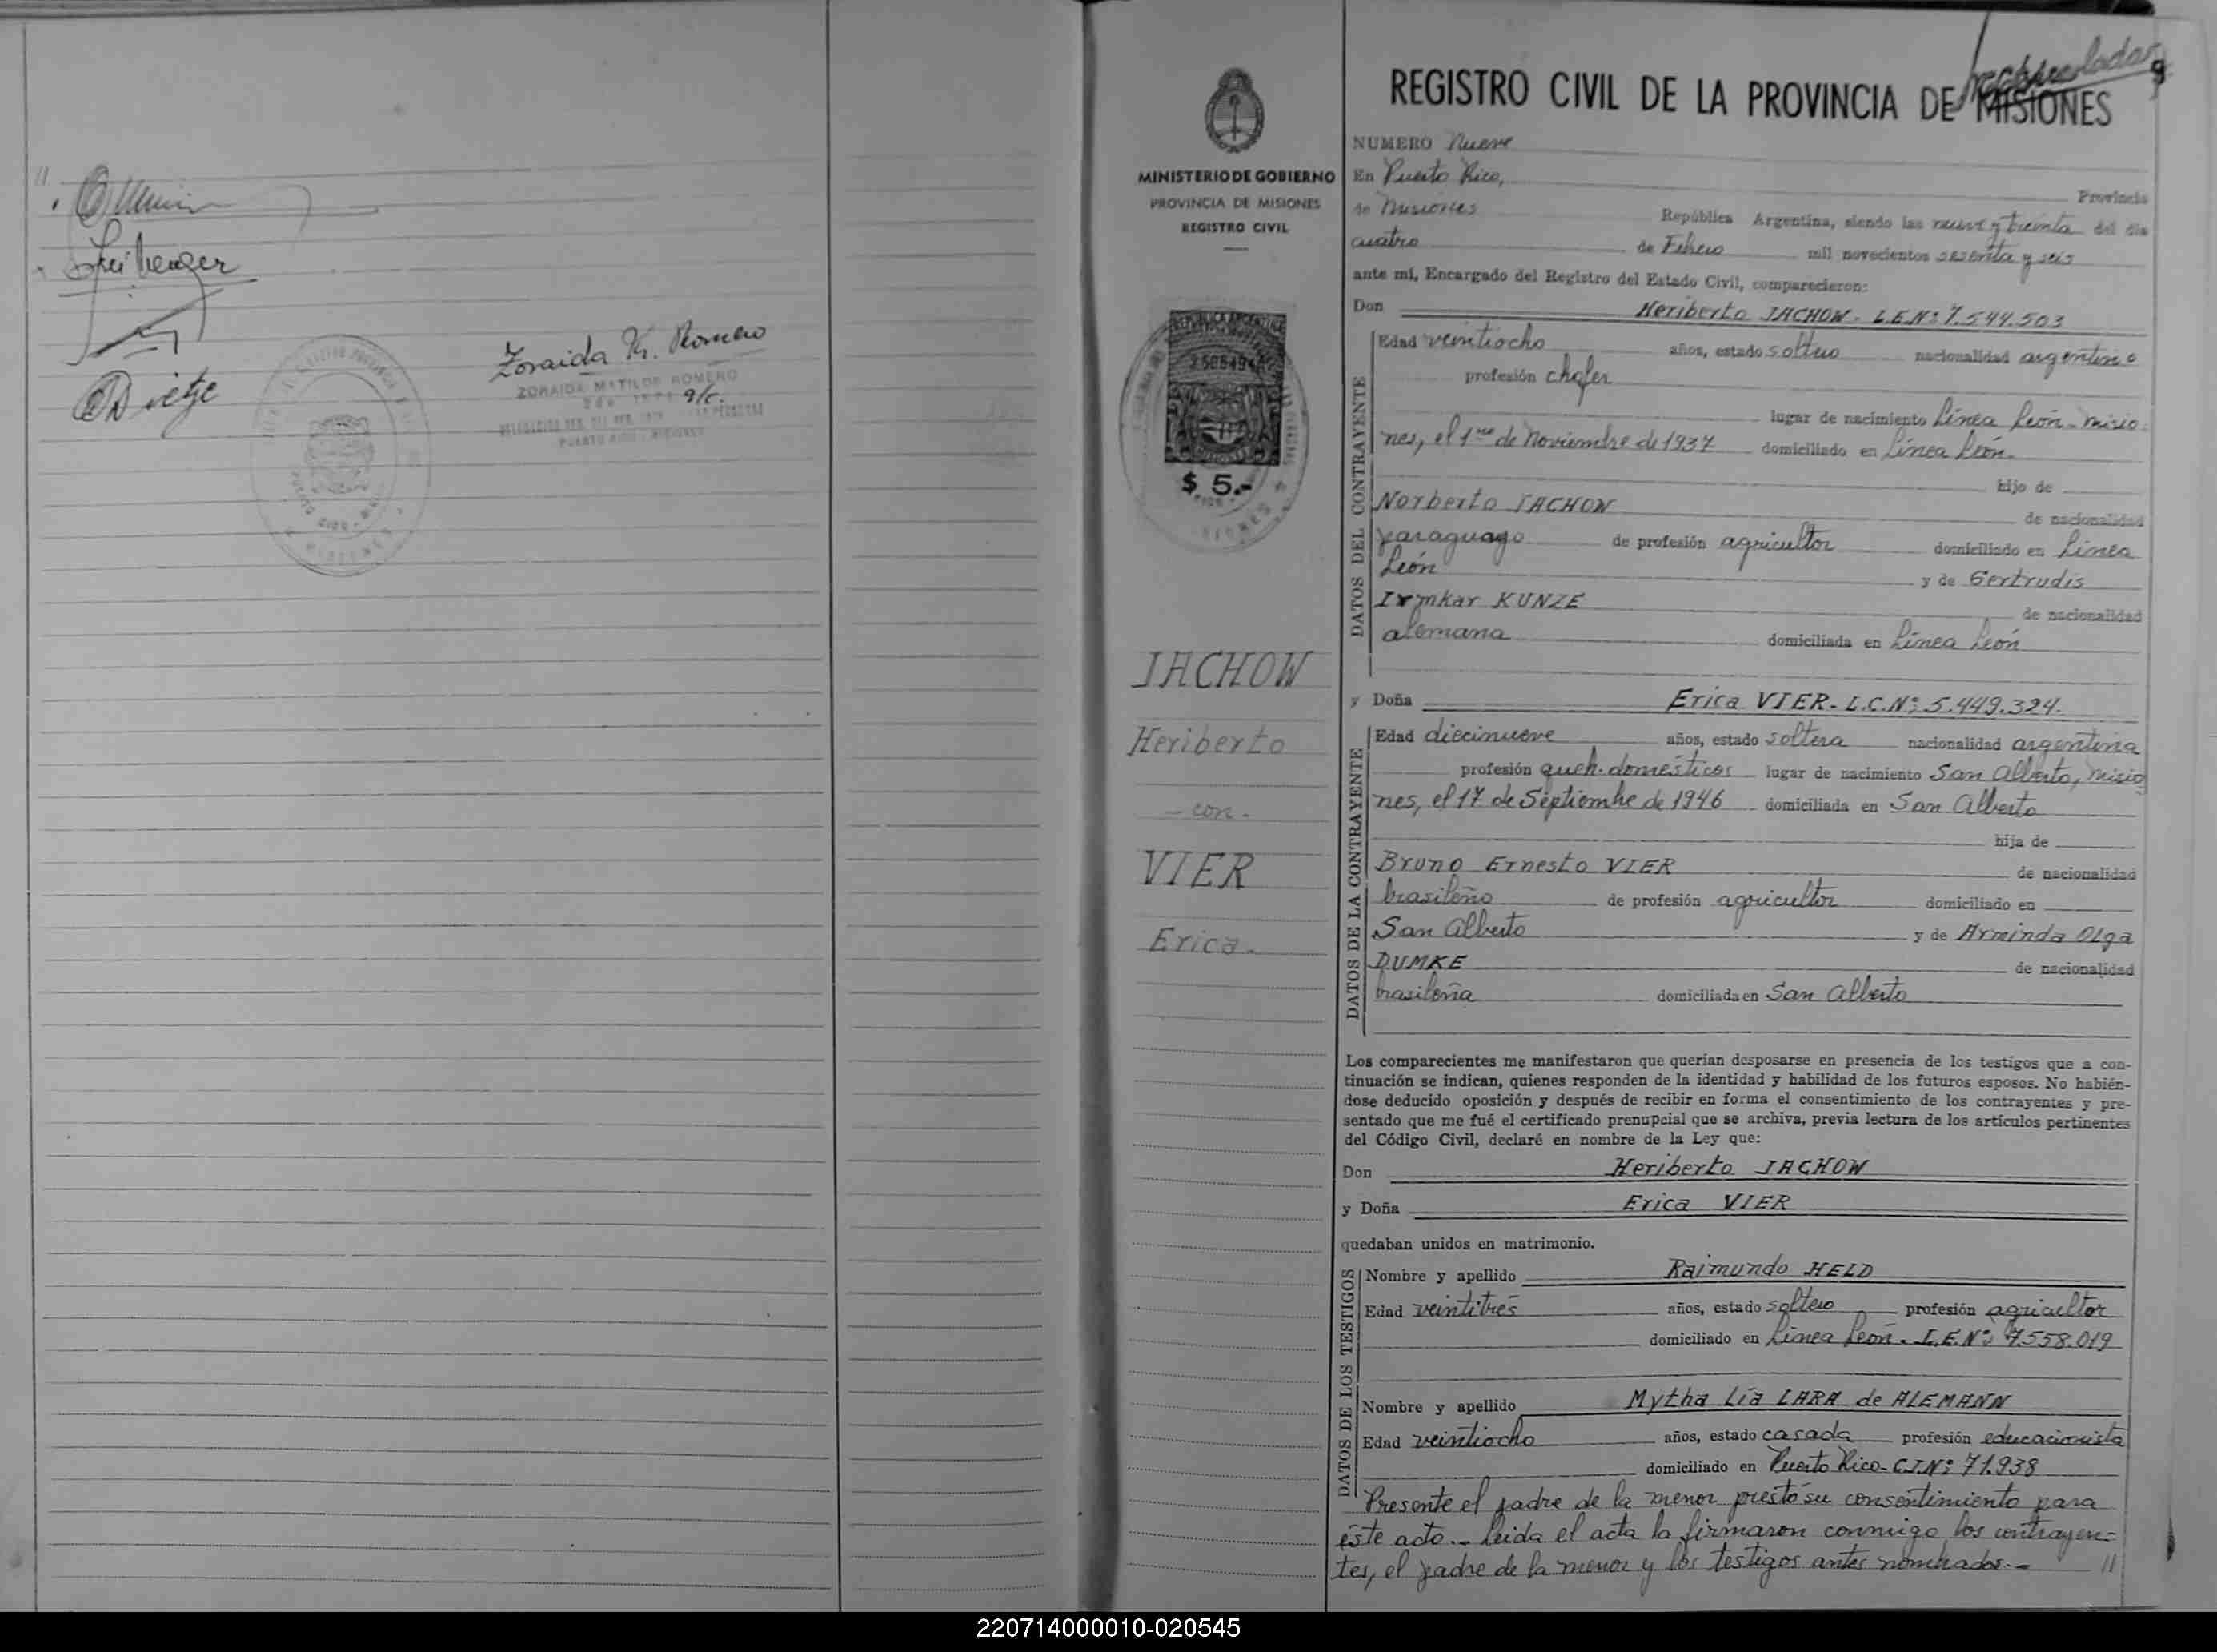 //
Freiberger
Diétze
Zoraida M. Romero
ZORAIDA MATILDE ROMERO
a/c.
PUERTO RICO - MISIONES
MINISTERIO DE GOBIERNO
PROVINCIA DE MISIONES
REGISTRO CIVIL
REPUBLICA ARGENTINA
MISIONES
$ 5.-
JACHOW
Heriberto
- con -
VIER
Erica.-
9
REGISTRO CIVIL DE LA PROVINCIA DE MISIONES
NUMERO Nueve
En Puerto Rico, Provincia
de Misiones República Argentina, siendo las nueve y treinta del día
cuatro de Febrero mil novecientos sesenta y seis
ante mí, Encargado del Registro del Estado Civil, comparecieron:
Don Heriberto JACHOW - L.E.Nº 7.544.503
DATOS DEL CONTRAYENTE
Edad veintiocho años, estado soltero nacionalidad argentino
profesión chofer
lugar de nacimiento Línea León - Misio-
nes, el 1ro de Noviembre de 1937 domiciliado en Línea León.-
hijo de
Norberto JACHOW de nacionalidad
paraguayo de profesión agricultor domiciliado en Línea
León y de Gertrudis
Irmkar KUNZE de nacionalidad
alemana domiciliada en Línea León
y Doña Erica VIER - L.C.Nº: 5.449.324.
DATOS DE LA CONTRAYENTE
Edad diecinueve años, estado soltera nacionalidad argentina
profesión queh. domésticos lugar de nacimiento San Alberto, Misio-
nes, el 17 de Septiembre de 1946 domiciliada en San Alberto
hija de
Bruno Ernesto VIER de nacionalidad
brasileño de profesión agricultor domiciliado en
San Alberto y de Arminda Olga
DUMKE de nacionalidad
brasileña domiciliada en San Alberto
Los comparecientes me manifestaron que querían desposarse en presencia de los testigos que a con-
tinuación se indican, quienes responden de la identidad y habilidad de los futuros esposos. No habién-
dose deducido oposición y después de recibir en forma el consentimiento de los contrayentes y pre-
sentado que me fué el certificado prenupcial que se archiva, previa lectura de los artículos pertinentes
del Código Civil, declaré en nombre de la Ley que:
Don Heriberto JACHOW
y Doña Erica VIER
quedaban unidos en matrimonio.
DATOS DE LOS TESTIGOS
Nombre y apellido Raimundo HELD
Edad veintitrés años, estado soltero profesión agricultor
domiciliado en Línea León.- L.E.Nº: 7.558.019
Nombre y apellido Mytha Lía LARA de ALEMANN
Edad veintiocho años, estado casada profesión educacionista
domiciliado en Puerto Rico - C.I.Nº: 71.938
Presente el padre de la menor prestó su consentimiento para
éste acto.- Leida el acta la firmaron conmigo los contrayen=
tes, el padre de la menor y los testigos antes nombrados.- //
220714000010-020545